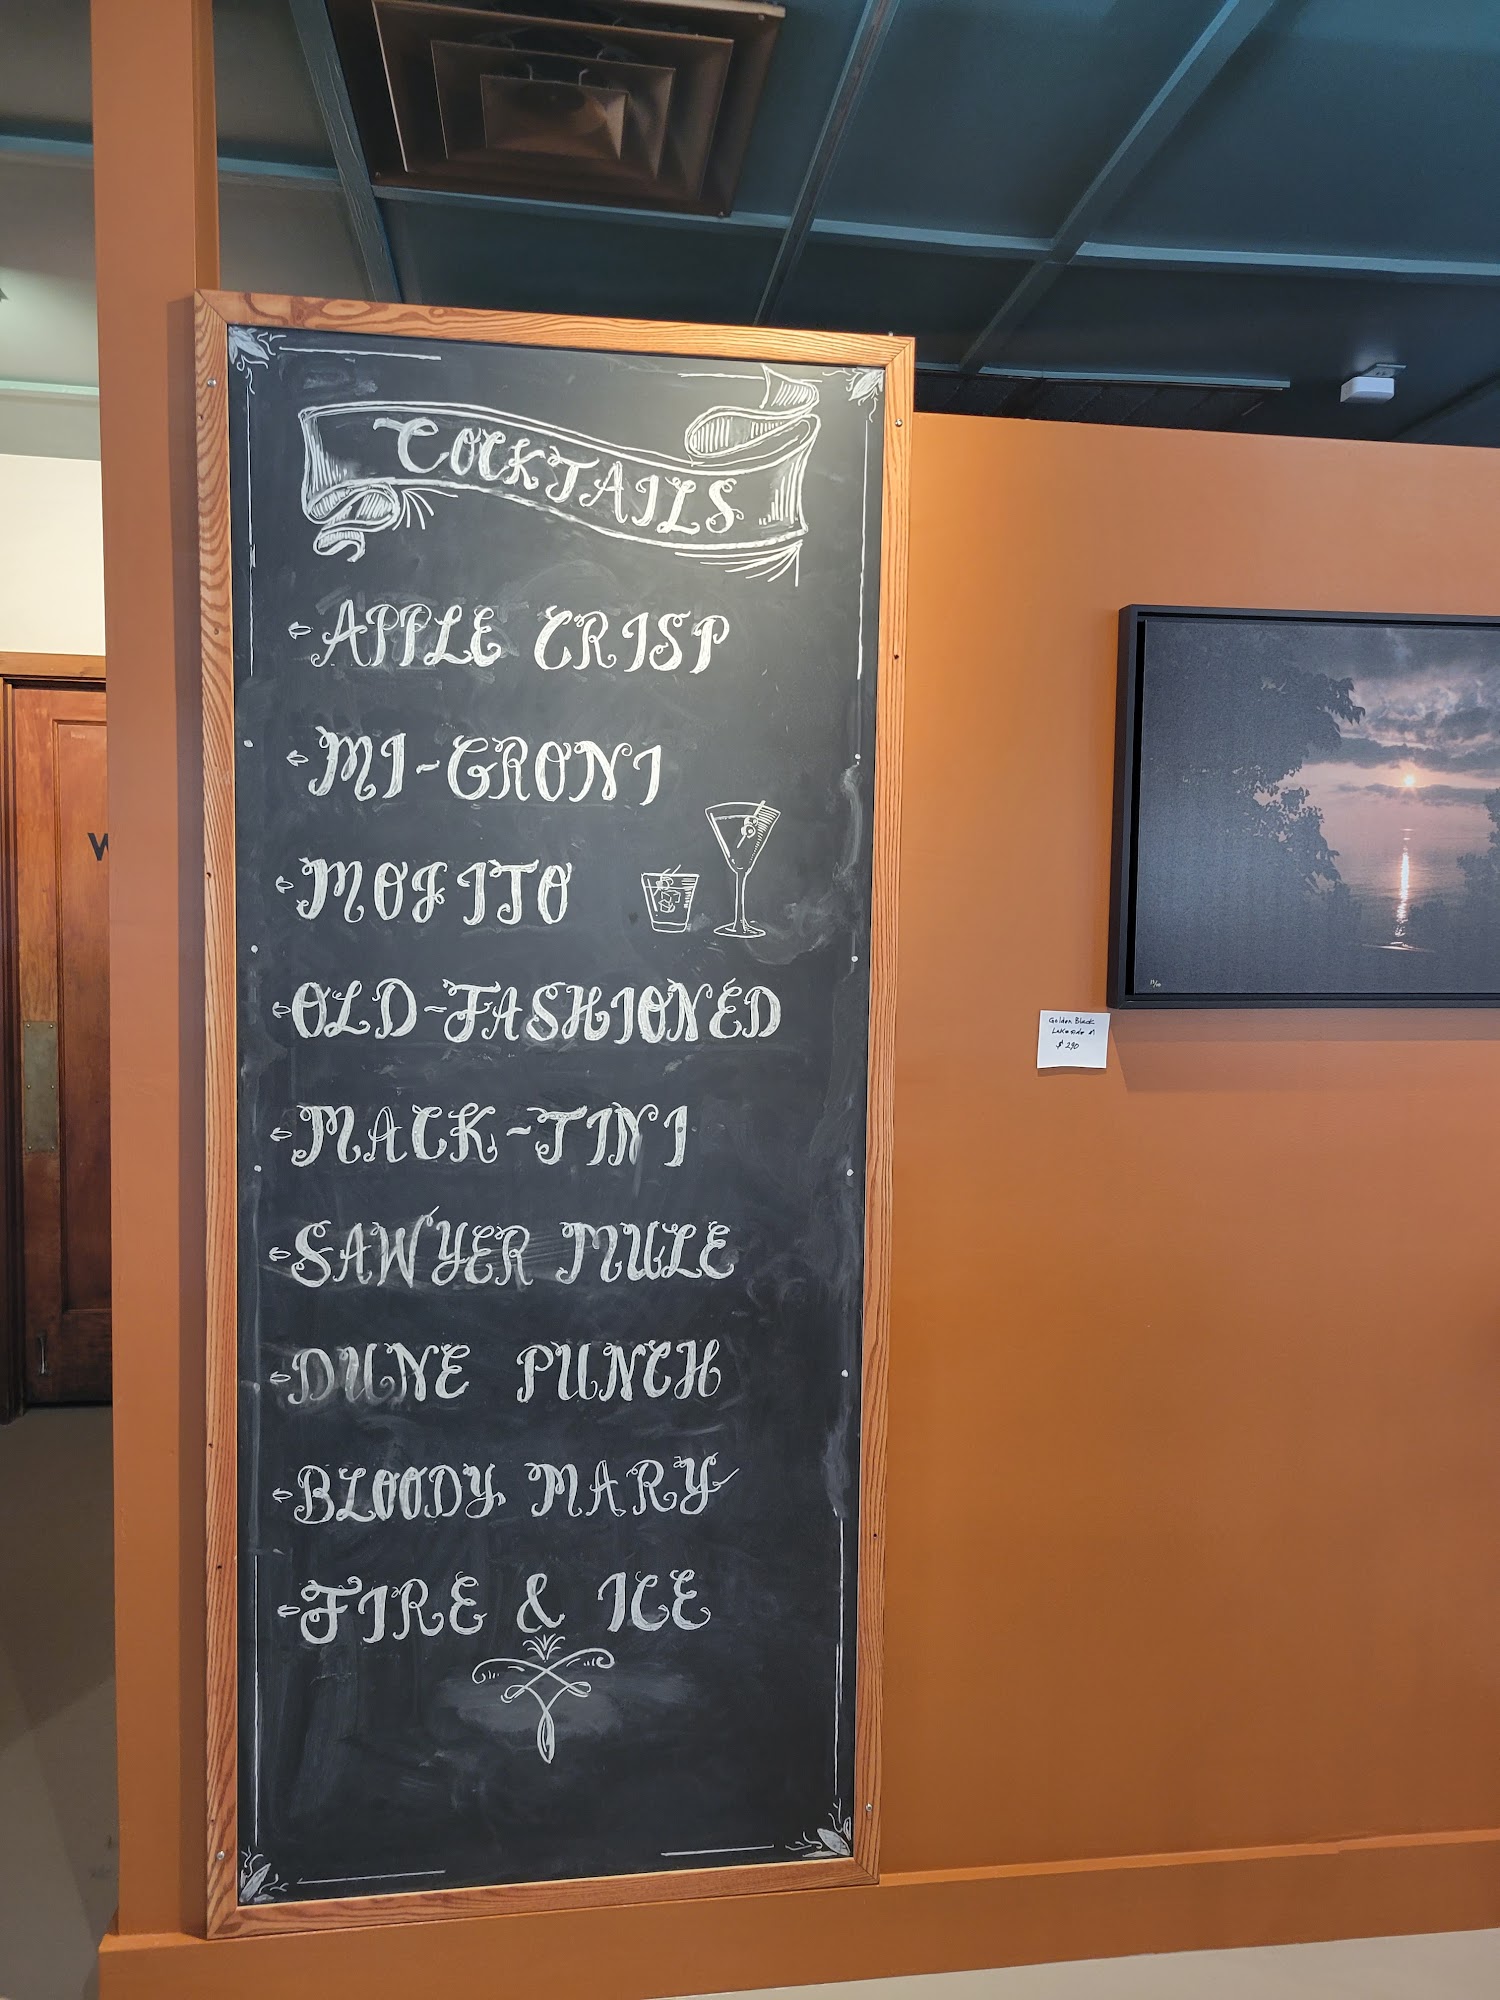 COCKTAILS
APPLE CRISP
MI-GRONI
MOJITO
OLD-FASHIONED
MACK-TINI
SAWYER MULE
DUNE PUNCH
BLOODY MARY
FIRE & ICE
W
Golden Black
$290